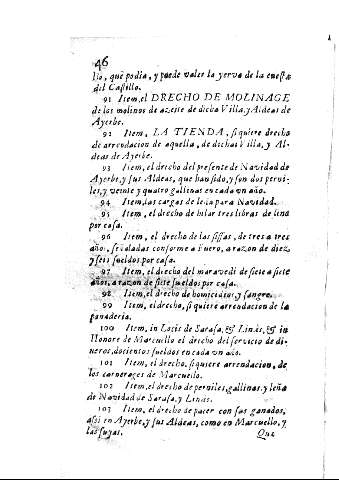 46
lio, que podia, y puede valer la yerva de la cuesta
del Castillo.
91 Item, el DRECHO DE MOLINAGE
de los molinos de azeite de dicha Villa, y Aldeas de
Ayerbe.
92 Item, LA TIENDA, si quiere drecho
de arrendacion de aquella, de dicha Villa, y Al-
deas de Ayerbe.
93 Item, el drecho del presente de Navidad de
Ayerbe, y sus Aldeas, que han sido, y son dos perni-
les, y veinte y quatro gallinas en cada un año.
94 Item, las cargas de leña para Navidad.
95 Item, el drecho de hilar tres libras de lino
por casa.
96 Item, el drecho de las sissas, de tres a tres
años, señaladas conforme a Fuero, a razon de diez
y seis sueldos por casa.
97 Item, el drecho del maravedi de siete a siete
años, a razon de siete sueldos por casa.
98 Item, el drecho de homicidios, y sangre.
99 Item, el drecho, si quiere arrendacion de la
panaderia.
100 Item, in Locis de Sarasa, & Linás, & in
Honore de Marcuello el drecho del servicio de di-
neros, docientos sueldos en cada un año.
101 Item, el drecho, si quiere arrendacion, de
los carnerages de Marcuello.
102 Item, el drecho de perniles, gallinas, y leña
de Navidad de Sarasa, y Linás.
103 Item, el drecho de pacer con sus ganados,
assi en Ayerbe, y sus Aldeas, como en Marcuello, y
las suyas.
Que